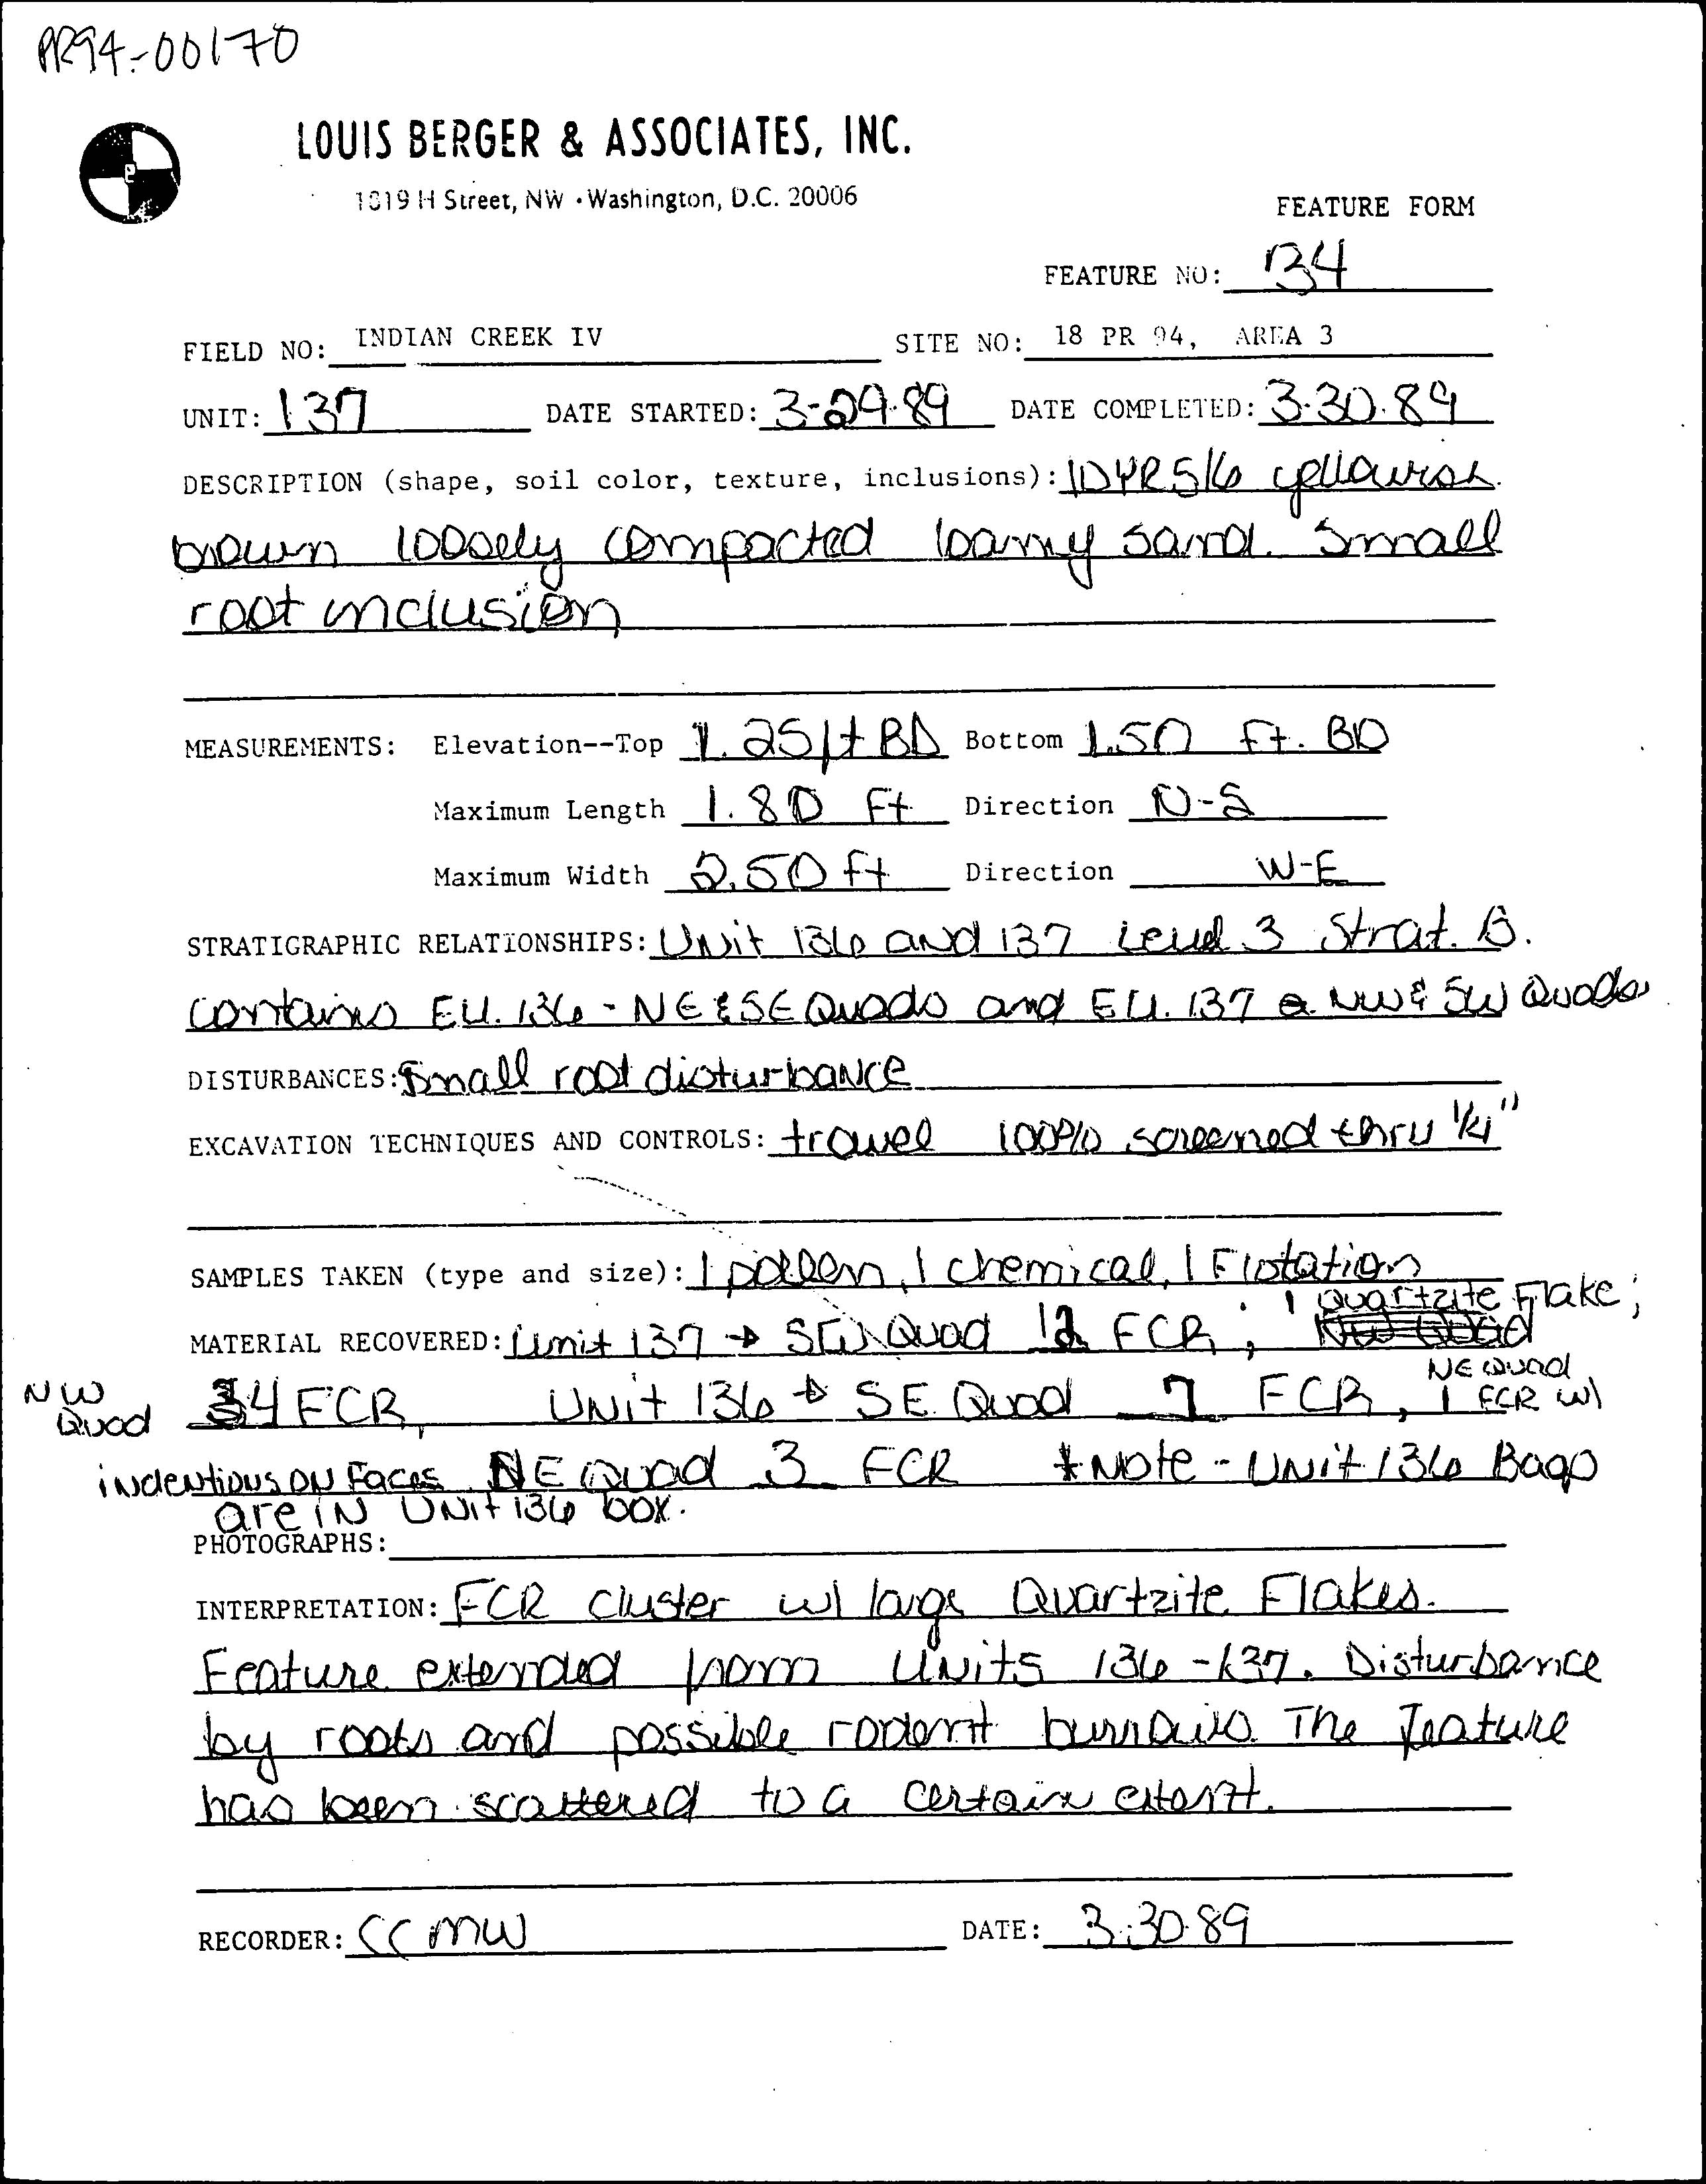 PR94-00170
LOUIS BERGER & ASSOCIATES, INC.
1819 H Street, NW • Washington, D.C. 20006
FEATURE FORM
FEATURE NO: 134
FIELD NO: INDIAN CREEK IV SITE NO: 18 PR 94, AREA 3
UNIT: 137 DATE STARTED: 3-29-89 DATE COMPLETED: 3-30-89
DESCRIPTION (shape, soil color, texture, inclusions): 10YR5/6 yellowish
brown loosely compacted loamy sand. Small
root inclusion
MEASUREMENTS: Elevation--Top 1.25ft BD Bottom 1.50 ft. BD
Maximum Length 1.80 Ft Direction N-S
Maximum Width 2.50 ft Direction W-E
STRATIGRAPHIC RELATIONSHIPS: Unit 136 and 137 Level 3 Strat. B.
Contains EU. 136 - NE & SE Quads and EU. 137 NW & SW Quads
DISTURBANCES: Small root disturbance
EXCAVATION TECHNIQUES AND CONTROLS: trowel 100% screened thru 1/4"
SAMPLES TAKEN (type and size): 1 pollen, 1 chemical, 1 Flotation
MATERIAL RECOVERED: Unit 137 → SW Quad 12 FCR; 1 Quartzite Flake;
NW Quad 34 FCR, Unit 136 → SE Quad 7 FCR, NE Quad 1 FCR w/
indentions on Faces NE Quad 3 FCR * Note - Unit 136 Bags
are in Unit 136 box.
PHOTOGRAPHS:
INTERPRETATION: FCR Cluster w/ large Quartzite Flakes.
Feature extended from Units 136-137. Disturbance
by roots and possible rodent burrows. The feature
has been scattered to a certain extent.
RECORDER: CC MW DATE: 3-30-89